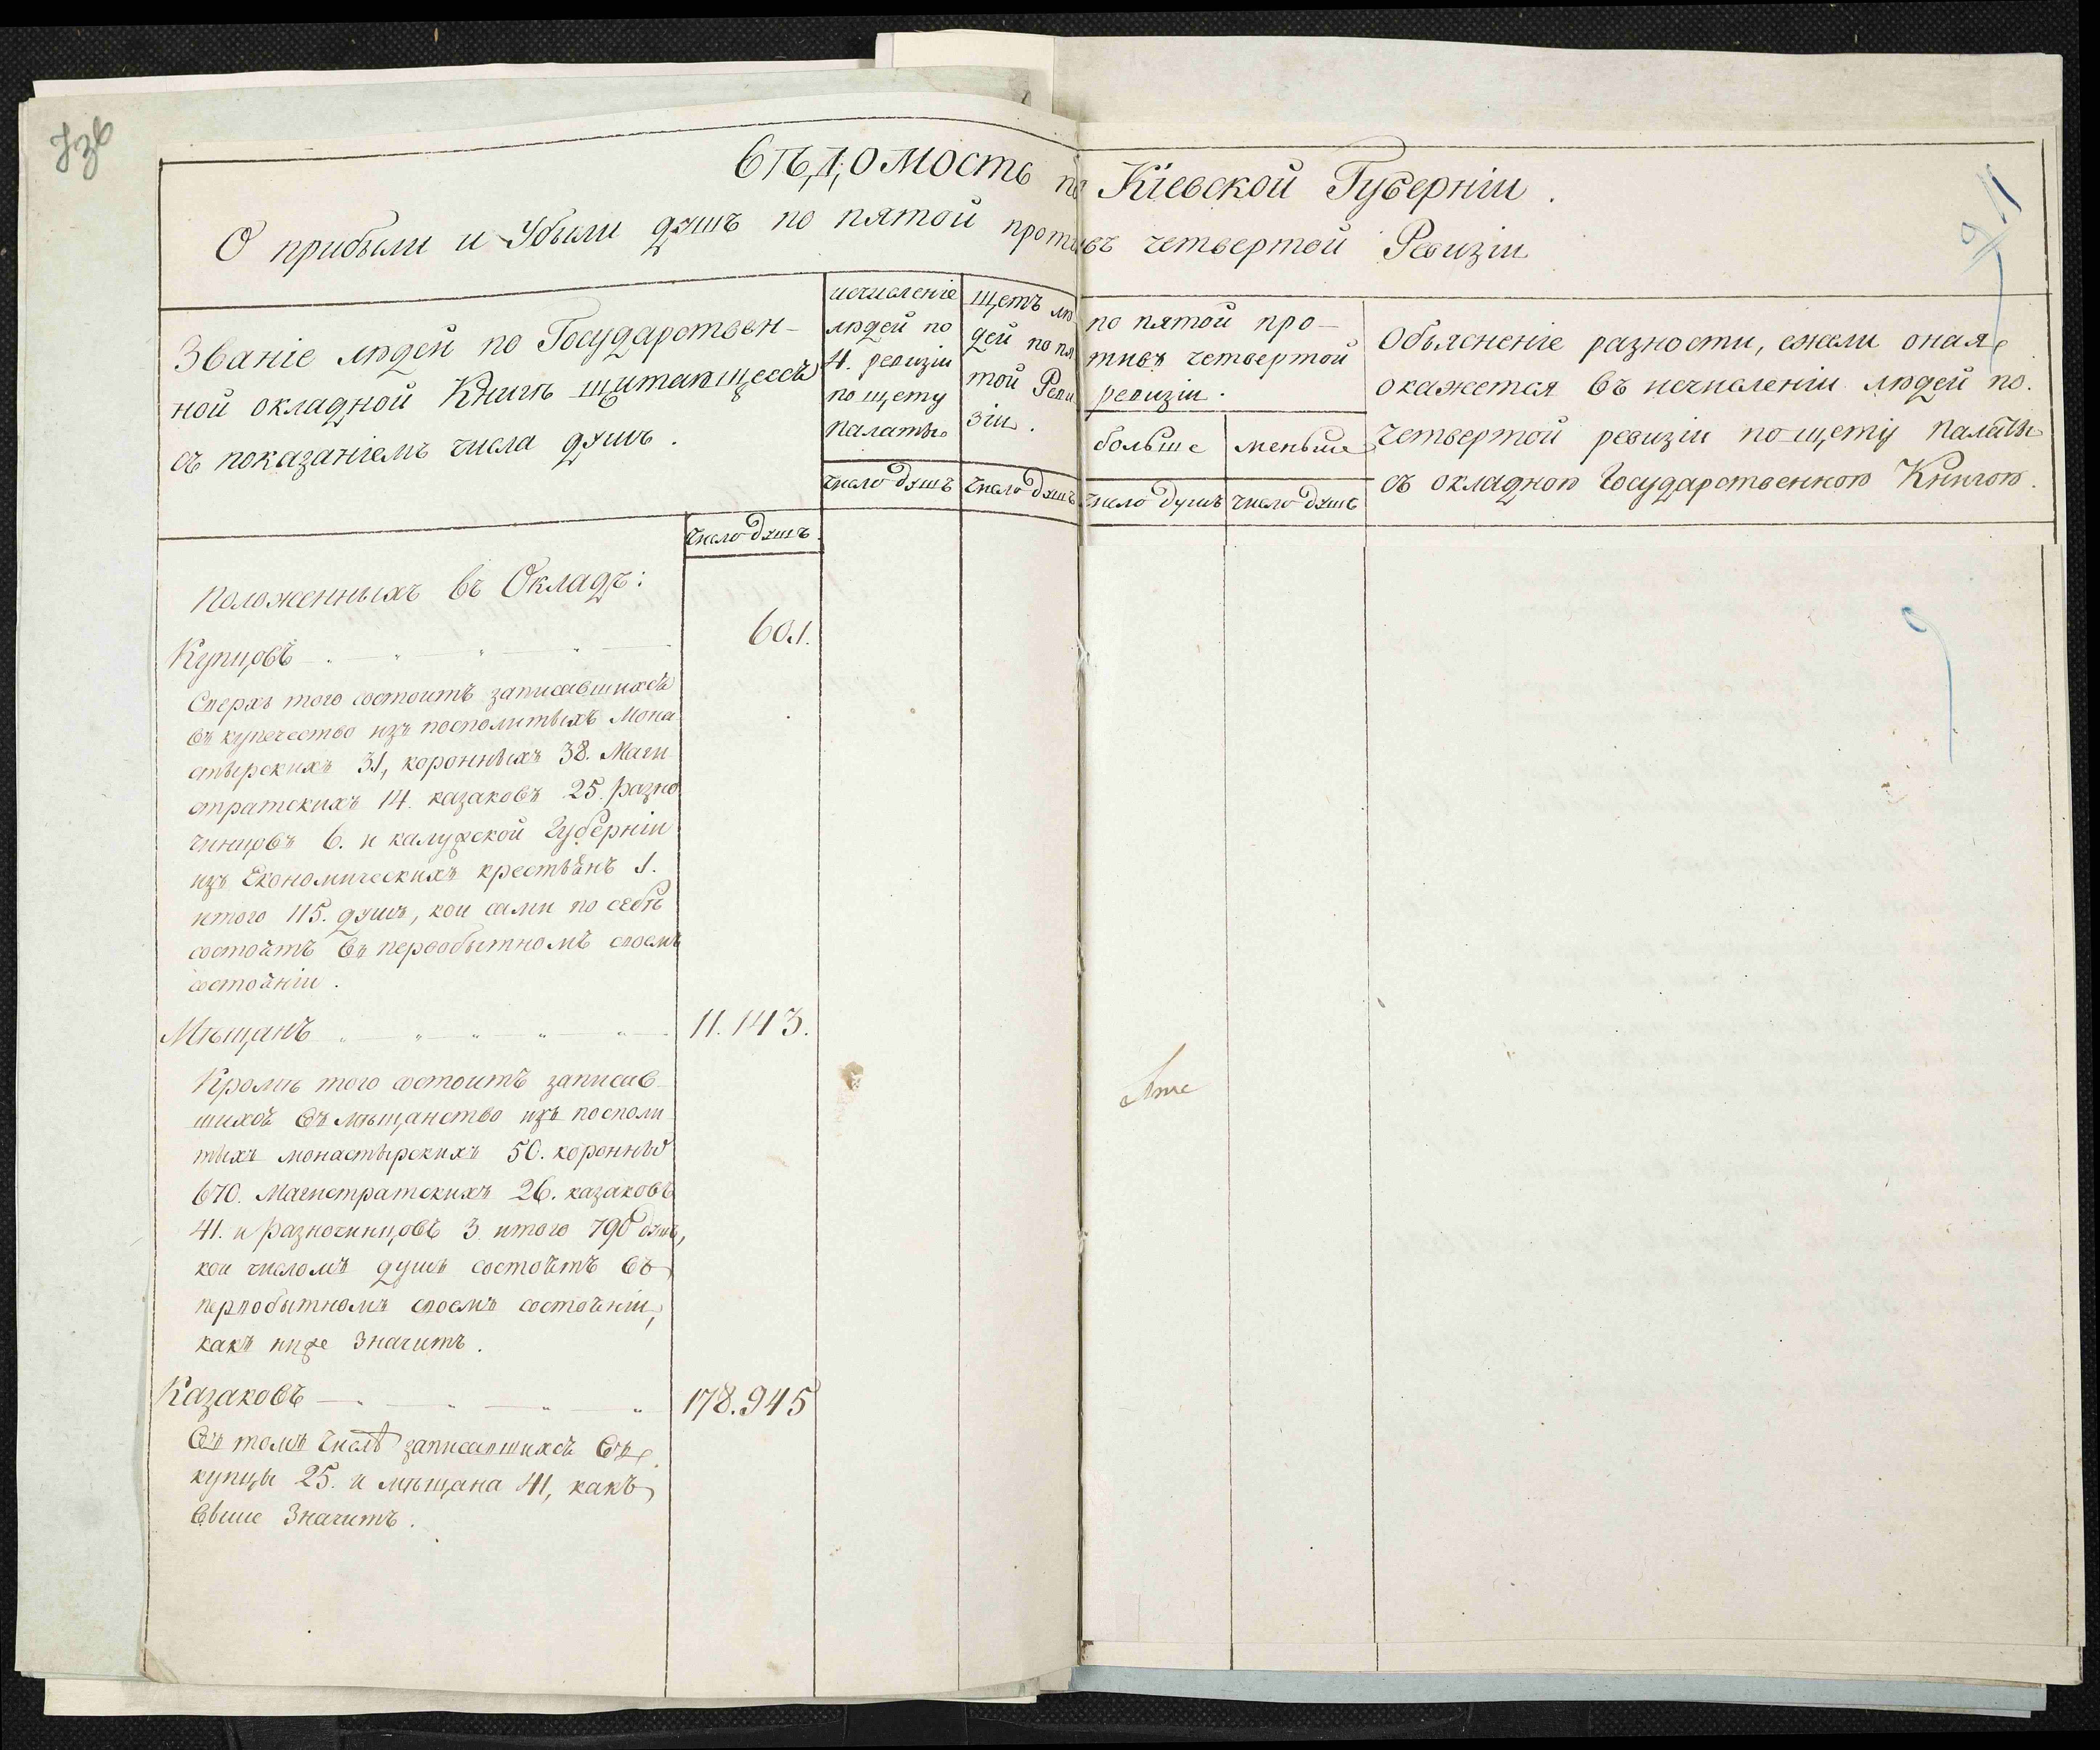 Вѣдомость по Кіевской Губерніи.
О прибыли и Убыли душъ по пятой противъ четвертой Ревизіи
Званіе людей по Государствен-
ной окладной Книгѣ щитающееся
съ показаніемъ числа душъ.
число душъ
исчисленіе
людей по
4. ревизіи
по щету
палаты
число душъ
щетъ лю
дей по пя
той Реви
зіи.
число душъ
по пятой про-
тивъ четвертой
ревизіи.
больше
меньше
число душъ
число душъ
Объясненіе разности, ежели оная
окажется въ исчисленіи людей по
четвертой ревизіи по щету палаты
съ окладною Государственною Книгою.
Положенныхъ въ Окладъ:
Купцовъ 601.
Сверхъ того состоитъ записавшихся
въ купечество изъ посполитыхъ Мона
стырскихъ 31, коронныхъ 38. Маги
стратскихъ 14. казаковъ 25. разно
чинцовъ 6. и калужской Губерніи
изъ Економическихъ крестьянъ 1.
итого 115. душъ, кои сами по себѣ
состоятъ въ первобытномъ своемъ
состояніи.
Мѣщанъ 11.143.
Кромѣ того состоитъ записав-
шихся въ мѣщанство изъ посполи
тыхъ монастырскихъ 50. коронныхъ
670. Магистратскихъ 26. казаковъ
41. и разночинцовъ 3. итого 790 душъ,
кои числомъ душъ состоятъ въ
первобытномъ своемъ состояніи,
какъ ниже значитъ.
Казаковъ 178.945
Въ томъ числѣ записавшихся въ
купцы 25. и мѣщана 41, какъ
выше значитъ.